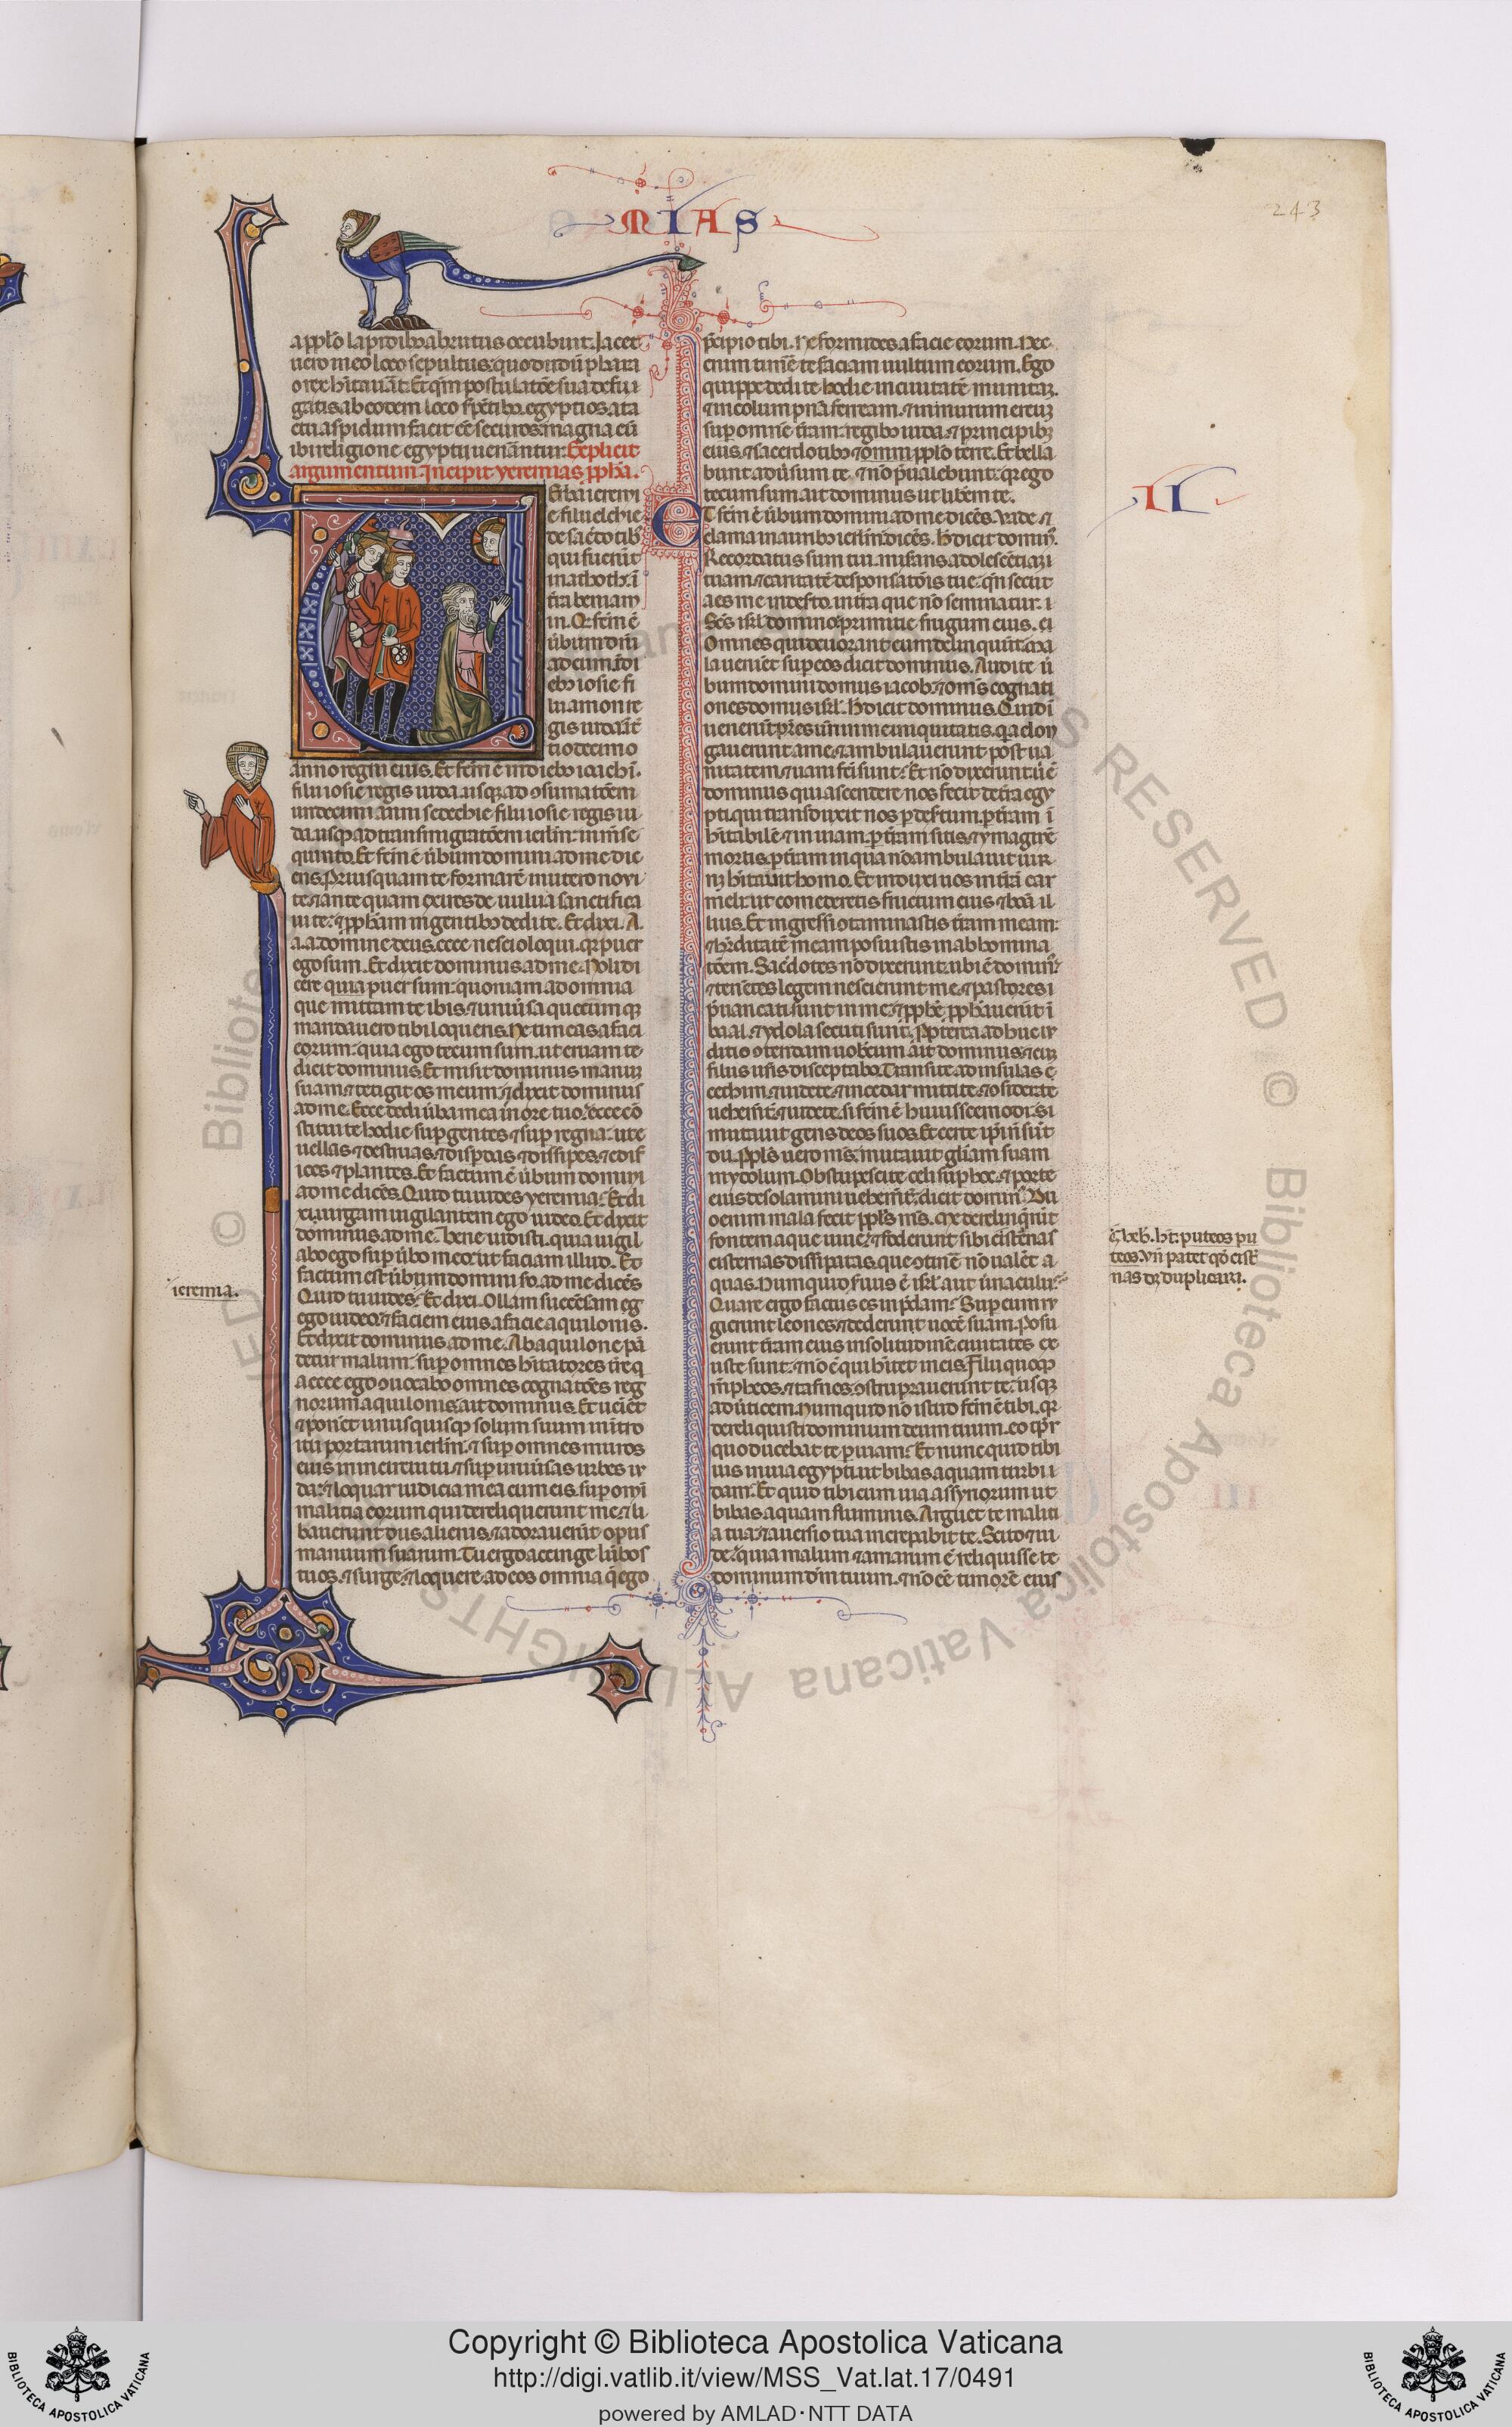 MIAS
243
a pplo lapidibus abrutus occubuit. Iacet
uero in eo loco sepultus: quo dudum phara
o rex habitauit.
gatis ab eodem loco
ctu aspidum facit esse securos. magna cum
ibi religione egyptii uenerantur. Explicit
argumentum. Incipit yeremias propheta.
Erba ieremi
e filii elchie
de sacerdotibus
qui fuerunt
in anathoth. in
terra beniam
in. Quod factum est
uerbum domini
ad eum. in di
ebus iosie fi
lii amon re
gis iuda.
tiodecimo
anno regni eius. Et factum est in diebus ioachim.
filii iosie regis iuda. usque ad consumationem
undecimi anni sedechie filii iosie regis iu
da. usque ad transmigrationem ierusalem. in mense
quinto. Et factum est uerbum domini ad me di
cens. Priusquam te formarem in utero noui
te. & ante quam exires de uulua sanctifica
ui te. & prophetam in gentibus dedi te. Et dixi. A.
a. a. domine deus. ecce nescio loqui. quia puer
ego sum. Et dixit dominus ad me. Noli di
cere quia puer sum: quoniam ad omnia
que mittam te ibis. & uniuersa quecumque
mandauero tibi loqueris. Ne timeas a faci
eorum: quia ego tecum sum. ut eruam te.
dicit dominus. Et misit dominus manum
suam & tetigit os meum. & dixit dominus
ad me. Ecce dedi uerba mea in ore tuo. ecce con
stitui te hodie super gentes & super regna. ut e
uellas & destruas. & disperdas & dissipes. & edif
ices & plantes. Et factum est uerbum domini
ad me dicens. Quid tu uides yeremia? Et di
xi. uirgam uigilantem ego uideo. Et dixit
dominus ad me. Bene uidisti. quia uigil
abo ego super uerbo meo. ut faciam illud. Et
factum est uerbum domini secundo. ad me dicens
Quid tu uides? Et dixi. Ollam succensam eg
ego uideo. & faciem eius a facie aquilonis.
Et dixit dominus ad me. Ab aquilone pan
detur malum: super omnes habitatores terre. q
a ecce ego conuocabo omnes cognationes reg
norum aquilonis. ait dominus. Et uenient
& ponet unusquisque solium suum in intro
itu portarum ierusalem. & super omnes muros
eius in in circuitu. & super uniuersas urbes iu
da. & loquar iudicia mea cum eis. super omni
malitia eorum qui dereliquerunt me. & li
bauerunt diis alienis. & adorauerunt opus
manuum suarum. Tu ergo accinge lumbos
tuos. & surge. & loquere ad eos omnia que ego
precipio tibi. Ne formides a facie eorum. Nec
enim timere te faciam uultum eorum. Ego
quippe dedi te hodie in ciuitatem munitam.
& in columpnam ferream. & in murum ereum
super omnem terram: regibus iuda. & principibus
eius. & sacerdotibus. & omni populo terre. Et bella
bunt aduersum te. & non preualebunt: quia ego
tecum sum. ait dominus ut liberem te.
ET factum est uerbum domini ad me dicens. Vade &
clama in auribus ierusalem dicens. Hec dicit dominus.
Recordatus sum tui. miserans adolescentiam
tuam. & caritatem desponsationis tue. quando secut
a es me in deserto. in terra que non seminatur.
Omnes qui deuorant eum delinquunt. ma
la uenient super eos dicit dominus. Audite uer
bum domini domus iacob. & omnes cognati
ones domus israel. Hec dicit dominus. Quid in
uenerunt patres uestri in me iniquitatis. quia elon
gauerunt a me. & ambulauerunt post ua
nitatem. & uani facti sunt? Et non dixerunt. ubi est
dominus qui ascendere nos fecit de terra egy
pti. qui transduxit nos per desertum. per terram in
habitabilem & inuiam. per terram sitis. & ymaginem
mortis. per terram in qua non ambulauit uir
neque habitauit homo. Et induxi uos in terram car
meli: ut comederetis fructum eius & bona il
lius. Et ingressi contaminastis terram meam:
& hereditatem meam posuistis in abhomina
tionem. Sacerdotes non dixerunt. ubi est dominus?
& tenentes legem nescierunt me. & pastores
preuaricati sunt in me. & prophete prophetauerunt in
baal. & ydola secuti sunt. Propterea adhuc iu
dicio contendam uobiscum ait dominus. & cum
filiis uestris disceptabo. Transite ad insulas ce
cethim. & uidete. & in cedar mittite. & considerate
uehementer. & uidete. si factum est huiuscemodi. Si
mutauit gens deos suos. Et certe ipsi non sunt
dii. Populus uero meus mutauit gloriam suam
in ydolum. Obstupescite celi super hoc. & porte
eius desolamini uehementer. dicit dominus. Du
o enim mala fecit populus meus. Me dereliquerunt
fontem aque uiue. & foderunt sibi cisternas
cisternas dissipatas. que continere non ualent a
quas. Numquid seruus est israel. aut uernaculus?
Quare ergo factus es in predam? Super eum ru
gierunt leones. & dederunt uocem suam. Posu
erunt terram eius in solitudinem. ciuitates ex
uste sunt. & non est qui habitet in eis. Filii quoque
mempheos. & tafnes. constuprauerunt te. usque
ad uerticem. Numquid non istud factum est tibi. quia
dereliquisti dominum deum tuum. eo tempore
quo ducebat te per uiam? Et nunc quid tibi
uis in uia egypti. ut bibas aquam turbi
dam? Et quid tibi cum uia assyriorum ut
bibas aquam fluminis. Arguet te maliti
a tua. & auersio tua increpabit te. Scito & ui
de. quia malum & amarum est reliquisse te
dominum deum tuum. & non esse timorem eius
II
ieremia.
hebr. habet: puteos pu
teos. Vnde patet quod cister
nas duplicari.
Copyright © Biblioteca Apostolica Vaticana
http://digi.vatlib.it/view/MSS_Vat.lat.17/0491
powered by AMLAD·NTT DATA
BIBLIOTECA APOSTOLICA VATICANA
BIBLIOTECA APOSTOLICA VATICANA